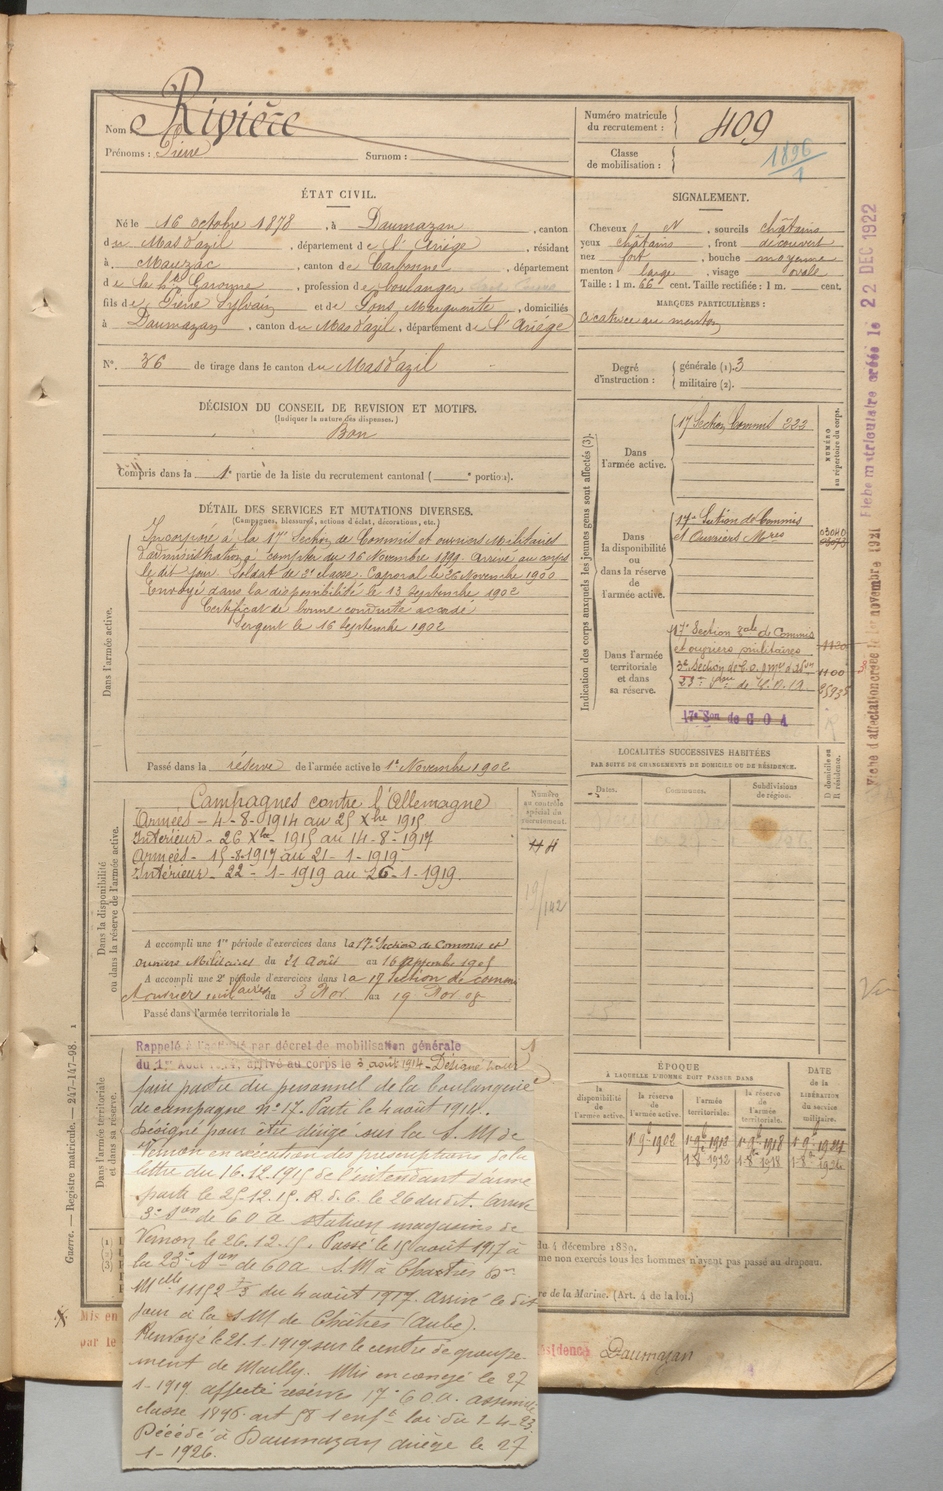 Nom : Rivière
Prénoms : Pierre Surnom :
Numéro matricule du recrutement : 409
Classe de mobilisation : 1896/1
ÉTAT CIVIL.
Né le 16 octobre 1878, à Daumazan, canton
du Mas d'azil, département de l'Ariége, résidant
à Mauzac, canton de Carbonne, département
de la Hte Garonne, profession de boulanger
fils de Pierre Sylvain et de Pons Marguerite, domiciliés
à Daumazan, canton du Mas d'azil, département de l'Ariége
N° 36 de tirage dans le canton du Mas d'azil
DÉCISION DU CONSEIL DE REVISION ET MOTIFS.
(Indiquer la nature des dispenses.)
Bon
Compris dans la 1e partie de la liste du recrutement cantonal ( e portion).
SIGNALEMENT.
Cheveux N, sourcils châtains
yeux châtains, front découvert
nez fort, bouche moyenne
menton large, visage ovale
Taille : 1 m. 66 cent. Taille rectifiée : 1 m. cent.
MARQUES PARTICULIÈRES :
cicatrice au menton
Degré d'instruction : générale (1). 3
militaire (2).
DÉTAIL DES SERVICES ET MUTATIONS DIVERSES.
(Campagnes, blessures, actions d'éclat, décorations, etc.)
Dans l'armée active.
Incorporé à la 17e Section de Commis et ouvriers Militaires
d'administration à compter du 16 Novembre 1899. Arrivé au corps
le dit jour. Soldat de 2e classe. Caporal le 26 Novembre 1900.
Envoyé dans la disponibilité le 13 Septembre 1902
Certificat de bonne conduite accordé
Sergent le 16 Septembre 1902
Passé dans la réserve de l'armée active le 1er Novembre 1902
Indication des corps auxquels les jeunes gens sont affectés (3).
NUMÉRO au répertoire du corps.
Dans l'armée active.
17 Section Commis 223
Dans la disponibilité ou dans la réserve de l'armée active.
17e Section de Commis
et Ouvriers Mres
Dans l'armée territoriale et dans sa réserve.
17e Section Rale de Commis
et ouvriers militaires
17e Son de C O A
Fiche matriculaire créée le 22 DEC 1922
Fiche d'affectation créée le 1er novembre 1921
Dans la disponibilité ou dans la réserve de l'armée active.
Numéro au contrôle spécial du recrutement.
Campagnes contre l'Allemagne
Armées - 4-8-1914 au 25 Xbre 1915
Intérieur - 26 Xbre 1915 au 14-8-1917
Armées - 15-8-1917 au 21-1-1919
Intérieur - 22-1-1919 au 26-1-1919
A accompli une 1re période d'exercices dans la 17e Section de Commis et
ouvriers Militaires du 21 Août au 16 Septembre 1905
A accompli une 2e période d'exercices dans la 17 Section de commis
et ouvriers militaires du 3 Nov. au 19 Nov 08
Passé dans l'armée territoriale le
LOCALITÉS SUCCESSIVES HABITÉES
PAR SUITE DE CHANGEMENTS DE DOMICILE OU DE RÉSIDENCE.
Dates. Communes. Subdivisions de région. D domicile ou R résidence.
Dans l'armée territoriale et dans sa réserve.
Rappelé à l'activité par décret de mobilisation générale
du 1er Août 1914, arrivé au corps le 3 août 1914. Désigné pour
faire partie du personnel de la boulangerie
de campagne n° 17. Parti le 4 août 1914.
Désigné pour être dirigé sur la S. M de
Vernon en exécution des prescriptions de la
lettre du 16.12.1915 de l'intendant d'armée
parti le 25.12.15. R. d. C. le 26 du dit. Arrivé
3e Son de C O A station magasins de
Vernon le 26.12.15. Passé le 15 août 1917 à
la 23e Son de C O A S.M à Chastres Don
Melle 11152 du 4 août 1917. arrivé le dit
jour à la S M de Châtres (Aube).
Renvoyé le 21.1.1919 sur le centre de groupe-
ment de Mailly. Mis en congé le 27
1-1919 affecté réserve 17e C O A. assimilé
classe 1896. art 58 1 enft loi du 1-4-23
Décédé à Daumazan ariège le 27
1-1926.
ÉPOQUE
À LAQUELLE L'HOMME DOIT PASSER DANS
la disponibilité de l'armée active. la réserve de l'armée active. l'armée territoriale. la réserve de l'armée territoriale.
DATE de la LIBÉRATION du service militaire.
du 4 décembre 1889.
me non exercés tous les hommes n'ayant pas passé au drapeau.
re de la Marine. (Art. 4 de la loi.)
Mis en
par le
résidence Daumazan
Guerre. — Registre matricule. — 247-147-98.